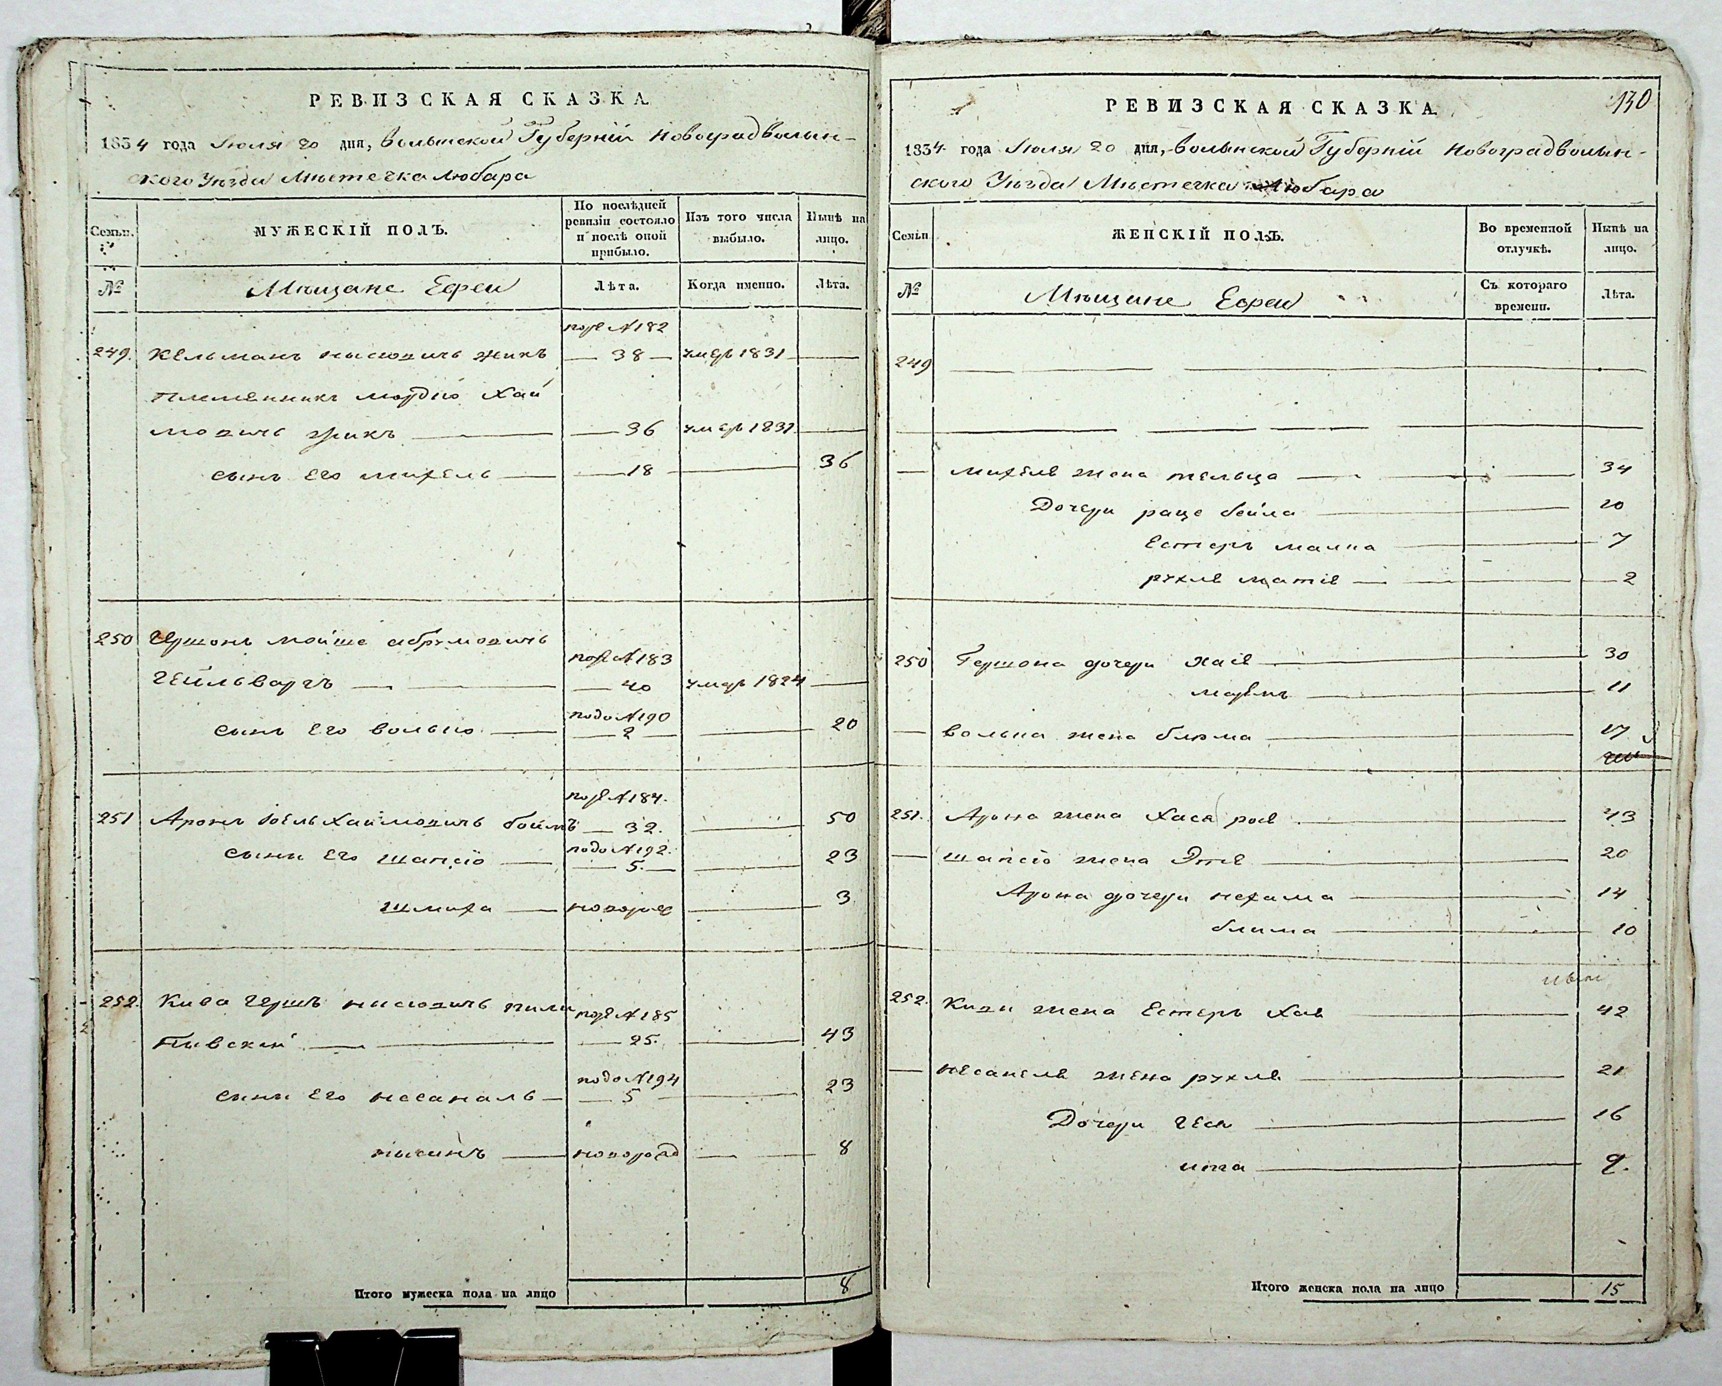 РЕВИЗСКАЯ СКАЗКА
1834 года Июля 20 дня, Волынской Губерніи Новоградволын-
ского Уѣзда Мѣстечка Любара
Семьи.
МУЖЕСКІЙ ПОЛЪ.
По послѣдней ревизіи состояло и послѣ оной прибыло.
Изъ того числа выбыло.
Нынѣ на лицо.
№
Мѣщане Евреи
Лѣта.
Когда именно.
Лѣта.
под № 182
249. Кельманъ Нысювичъ Жикъ 38 умеръ 1831
Племенникъ Мордко Хай
мовичъ Жикъ 36 умеръ 1831
сынъ его Михель 18 36
250 Гершонъ Мойше Абрумовичъ
под № 183
Гейльваргъ 40 умеръ 1824
подо № 190
сынъ его Волько 2 20
под № 184.
251 Аронъ Хаимовичъ 32. 50
подо № 192.
сыны его Шапсіо 5. 23
Шмиха новорож 3
252. Кива Гершъ Нисювичъ
под № 185
25. 43
подо № 194
сыны его Несанель 5 23
Нысинъ новорожд 8
Итого мужеска пола на лицо 8
130
РЕВИЗСКАЯ СКАЗКА
1834 года Июля 20 дня, Волынской Губерніи Новоградволын-
ского Уѣзда Мѣстечка Любара
Семьи
ЖЕНСКІЙ ПОЛЪ.
Во временной отлучкѣ.
Нынѣ на лицо.
№
Мѣщане Евреи
Съ котораго времени.
Лѣта.
249
Михеля жена Тельца 34
Дочери Раце Бейла 20
Естеръ Малка 7
Рухля Матіе 2
250 Гершона дочери Хаіе 30
11
Волька жена Блюма 17
251. Арона жена Хася Роя 43
Шапсіо жена Этя 20
Арона дочери Нехама 14
Блима 10
252. Киви жена Естеръ Хая 42
Несанеля жена Рухля 21
Дочери Геся 16
Итта 9.
Итого женска пола на лицо 15